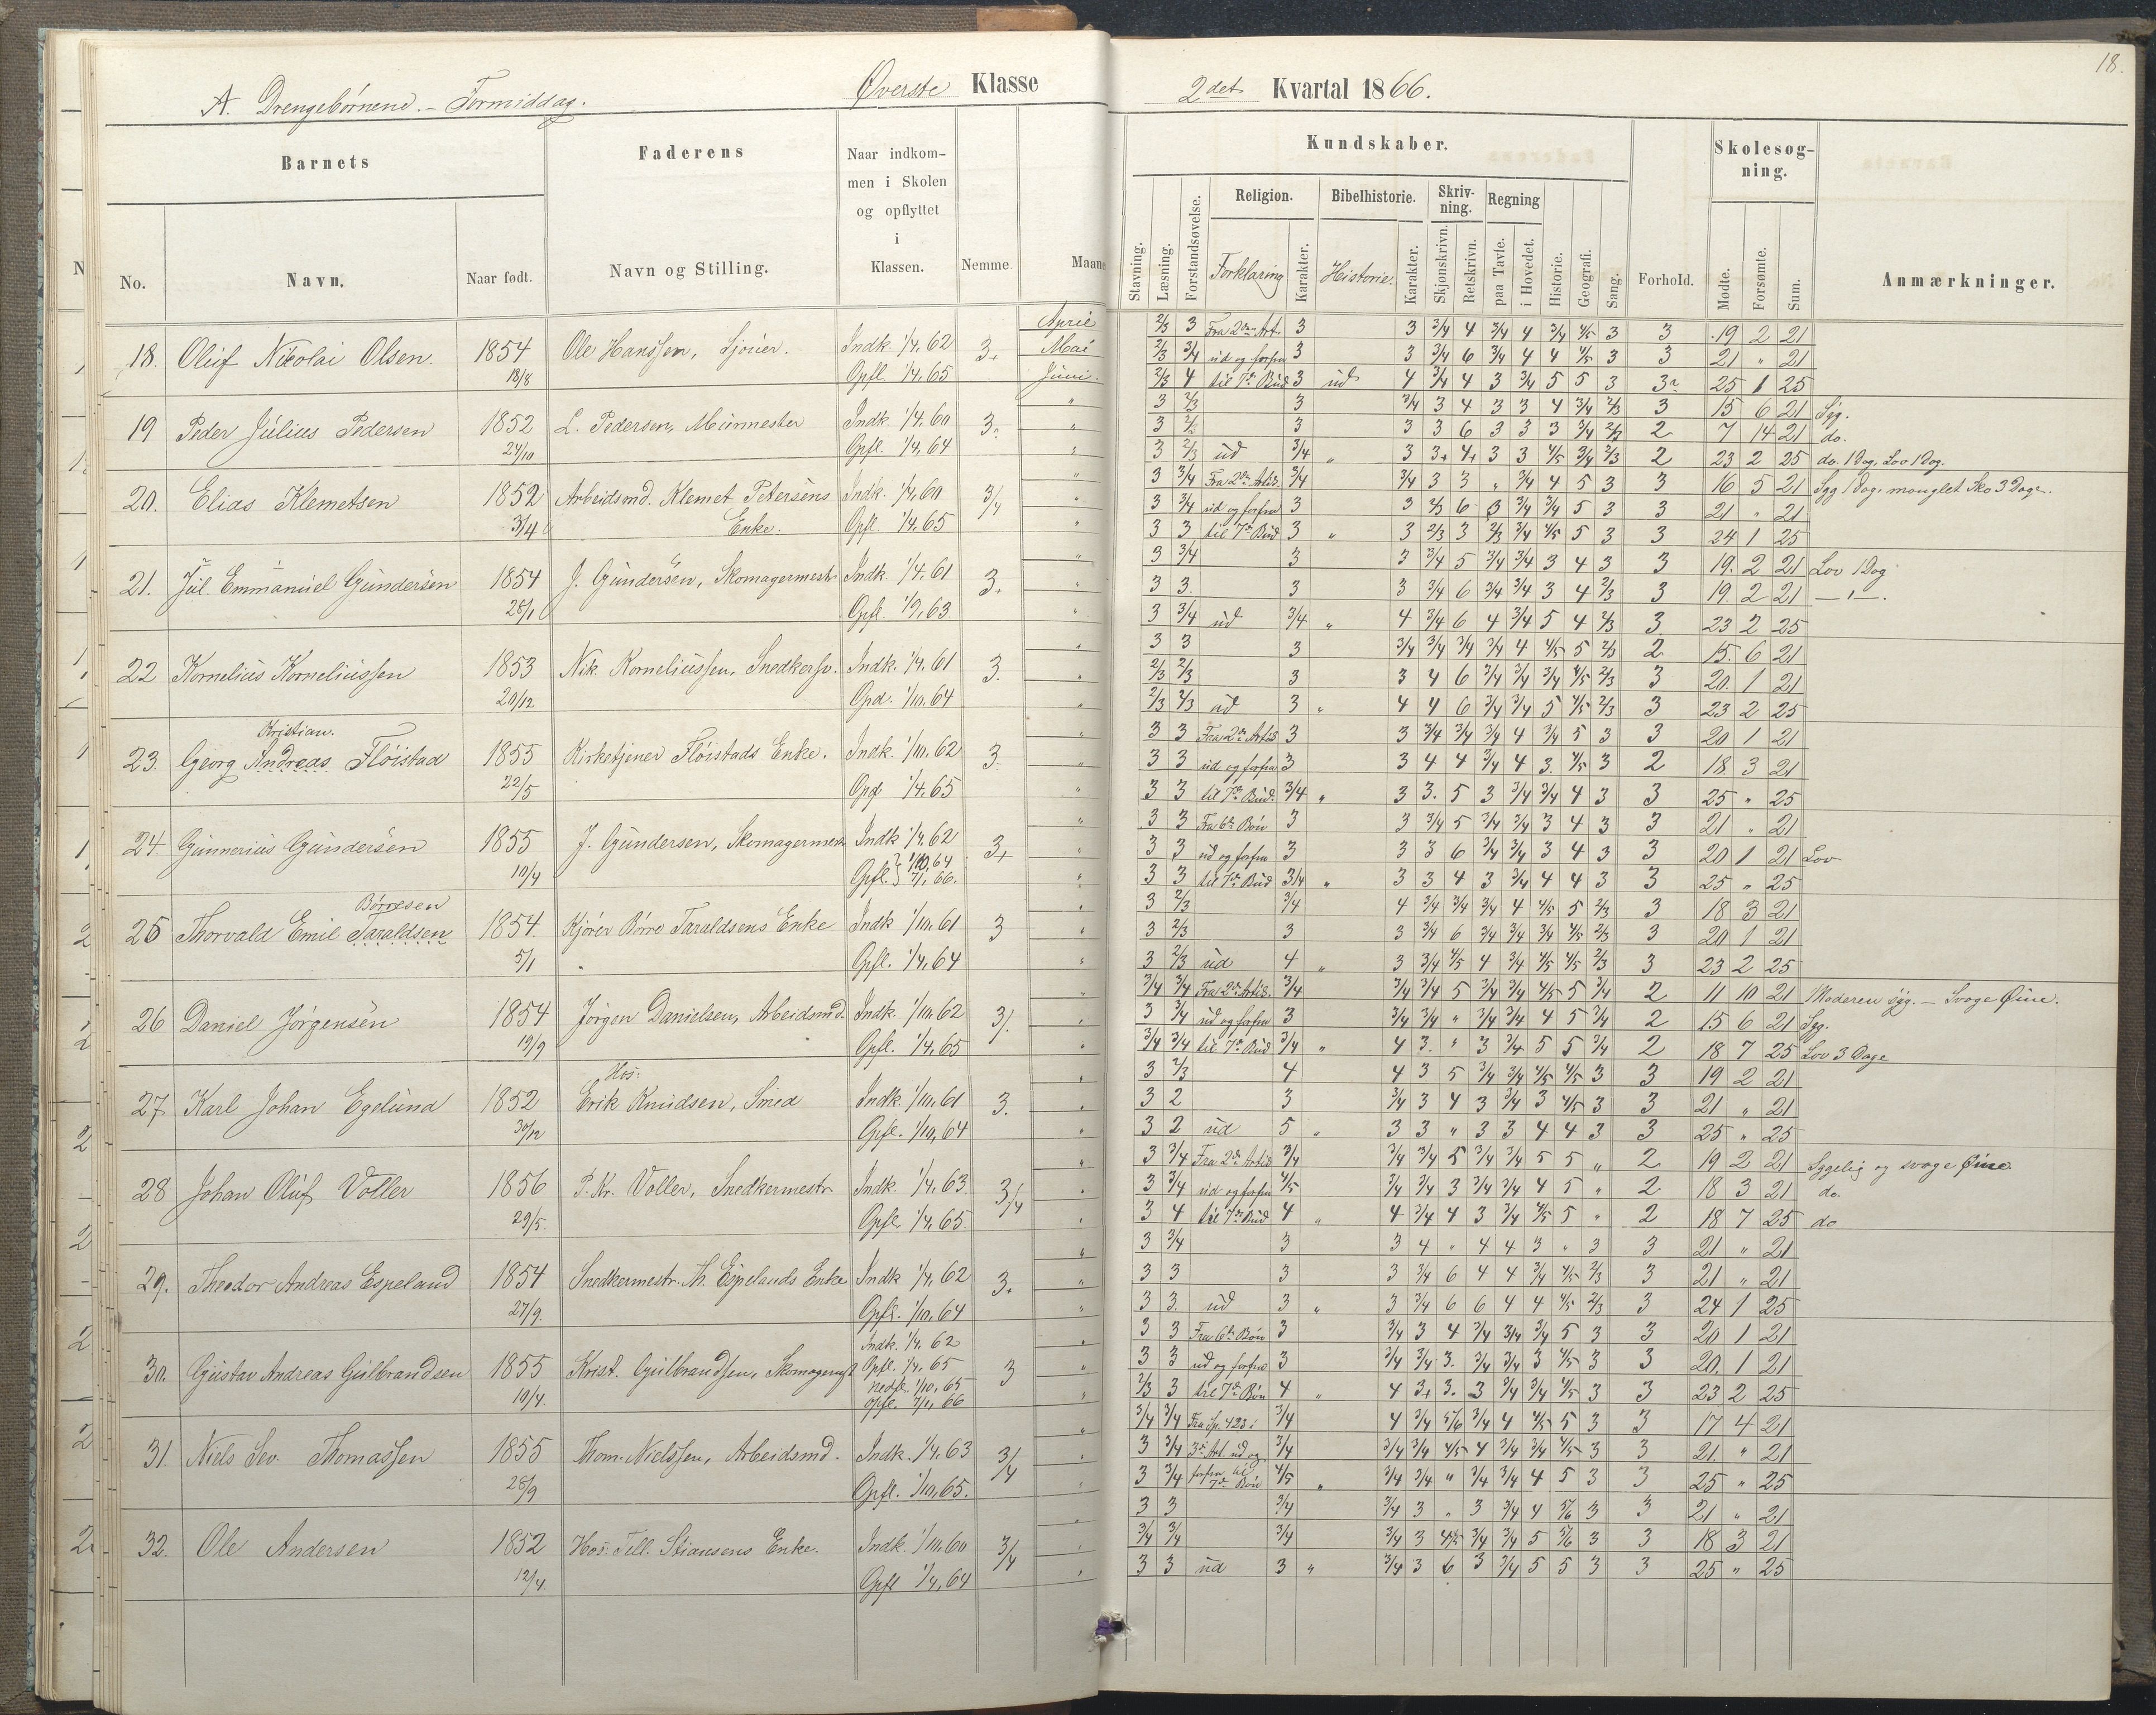 18.
A. Drengebørnene. – Formiddag. Øverste Klasse 2det Kvartal 1866.
Barnets Faderens Naar indkommen i Skolen og opflyttet i Klassen. Nemme. Kundskaber. Skolesøgning.
Religion. Bibelhistorie. Skrivning. Regning
No. Navn. Naar født. Navn og Stilling. Maane Stavning. Læsning. Forstandsøvelse. Forklaring Karakter. Historie. Karakter. Skjønskrivn. Retskrivn. paa Tavle. i Hovedet. Historie. Geografi. Sang. Forhold. Mødte. Forsømte. Sum. Anmærkninger.
April 2/3 3 Fra 2den Art. 3 3 3/4 4 3/4 4 3/4 4/5 3 3 19 2 21
18. Oluf Nikolai Olsen. 1854 Ole Hanssen, Sjouer. Indk. 1/4. 62 3+ Mai 2/3 3/4 ud og forfra 3 3 3/4 6 3/4 4 4 4/5 3 3 21 " 21
18/8 Opfl. 1/4. 65 Juni. 2/3 4 til 7de Bud 3 ud 4 3/4 4 3 3/4 5 5 3 25 1 25
" 3 2/3 3 3/4 3 4 3 3 4 3/4 2/3 3 15 6 21 Syg.
19 Peder Julius Pedersen 1852 L. Pedersen, Muurmester Indk. 1/4. 60 " 3 3 3 6 3 3 3 3/4 2/3 2 7 14 21 do.
24/10 Opfl. 1/4. 64 " 3 2/3 ud 3/4 " 3 3+ 4+ 3 3 4/5 3/4 2/3 2 23 2 25 do. 1 Dag, Lov 1 Dag.
" 3 3/4 Fra 2den Artik. 3/4 3/4 3 3 " 3/4 4 5 3 3 16 5 21 Syg 1 Dag, manglet Sko 3 Dage.
20. Elias Klemetsen 1852 Arbeidsmd. Klemet Petersens Indk. 1/4. 60 3/4 " 3 3/4 ud og forfra 3 3 2/3 6 3 3/4 3/4 5 3 3 21 " 21
3/4 Enke. Opfl. 1/4. 65 " 3 3 til 7de Bud 3 " 3 2/3 3 2/3 3/4 4/5 5 3 3 24 1 25
" 3 3/4 3 3 3/4 5 3/4 3/4 3 4 3 3 19. 2 21 Lov 1 Dag
21. Jul. Emmanuel Gundersen 1854 J. Gundersen, Skomagermestr. Indk. 1/4. 61 3+ " 3 3. 3 3 3/4 6 3/4 3/4 3 4 2/3 3 19. 2 21 — " —.
28/1 Opfl. 1/9. 63 " 3 3/4 ud 3/4 " 4 3/4 6 4 3/4 5 4 2/3 3 23 2 25
" 3 3 3 3/4 3/4 3/4 3/4 4 4/5 5 2/3 2 15. 6 21
22 Kornelius Korneliussen 1853 Nik. Korneliussen, Snedkersv. Indk. 1/4. 61 3. " 2/3 2/3 3 3 4 6 3/4 3/4 3/4 4/5 2/3 3 20. 1 21
20/12 Opd. 1/10. 64 " 2/3 2/3 ud 3 " 4 4 6 3/4 3/4 5 4/5 2/3 3 23 2 25
Kristian. " 3 3 Fra 2de Artik 3 3 3/4 3/4 3/4 4 3/4 5 3 3 20 1 21
23. Georg Andreas Fløistad 1855 Kirketjener Fløistads Enke. Indk. 1/10. 62 3. " 3 3 ud og forfra 3 3 4 4 3/4 4 3. 4/5 3 2 18. 3 21
22/5 Opd 1/4. 65 " 3 3 til 7de Bud. 3/4 " 3 3. 5 3 3/4 3/4 4 3 3 25 " 25
" 3 3 Fra 6te Bøn 3 3 3/4 5 3/4 3/4 3 4 3 3 21 " 21
24. Gunnerius Gundersen 1855 J. Gundersen, Skomagermestr. Indk 1/4. 62 3+ " 3 3 ud og forfra 3 3 3 6 3/4 3/4 3 4 3 3 20 1 21 Lov
10/4 Opfl. 1/10. 64 7/1. 66. " 3 3 til 7de Bud 3/4 " 3 3 4 3 3/4 4 4 3 3 25 " 25
Børresen " 3 2/3 3/4 4 3/4 3/4 3/4 4 4/5 5 2/3 3 18 3 21
25 Thorvald Emil Taraldsen 1854. Kjører Børre Taraldsens Enke Indk 1/10. 61 3 " 3 2/3 3 3 3/4 6 3/4 3/4 3/4 4/5 2/3 3 20 1 21
5/1 Opfl. 1/4. 64 " 3 2/3 ud 4 " 3 3/4 4/5 4 3/4 4/5 4/5 2/3 3 23 2 25
" 3/4 3/4 Fra 2de Artik. 3/4 3/4 3/4 5 3/4 3/4 4/5 5 3/4 2 11 10 21 Moderen syg. – Svage Øine.
26 Daniel Jørgensen 1854 Jørgen Danielsen, Arbeidsmd. Indk. 1/10. 62 3/. " 3 3/4 ud og forfra 3 3/4 3/4 " 3/4 3/4 4 5 3/4 2 15 6 21 Syg.
19/9 Opfl. 1/4. 65 " 3/4 3/4 til 7de Bud 3/4 " 4 3. " 3 3/4 5 5 3/4 2 18 7 25 Lov 3 Dage
Hos: " 3 2/3 4 4 3 5 3/4 3/4 4/5 4/5 3 3 19 2 21
27 Karl Johan Egelund 1852 Erik Knudsen, Smed Indk. 1/10. 61 3. " 3 2 3 3/4 3 4 3 3/4 3 4/5 3 3 21 " 21
30/12 Opfl. 1/10. 64 " 3 2 ud 5 " 3 3 " 3 3 4 4 3 3 25 " 25
3 3/4 Fra 2de Artik 3/4 3/4 3/4 5 3/4 3/4 5 5 " 2 19 2 21 Sygelig og svage Øine.
28 Johan Oluf Voller 1856 P. Kr. Voller, Snedkermestr. Indk. 1/4. 63. 3/4 " 3 3/4 ud og forfra 4/5 3/4 3/4 3 3/4 3/4 4 5 " 2. 18 3 21 do.
29/5. Opfl. 1/4. 65. " 3 4 til 7de Bud 4 " 4 3/4 4 3 3/4 4/5 5 " 2 18 7 25 do
" 3 3/4 3 3 4 " 4 4 3 " 3 3 21 " 21
29. Theodor Andreas Espeland 1854 Snedkermestr. A. Espelands Enke Indk 1/4. 62 3+ " 3 3 3 3 3/4 6 4 4 3/4 4/5 2/3 3 21 " 21
27/9. Opfl. 1/10. 64 " 3 3. ud 3 " 3 3/4 6 6 4 4 4/5 2/3 3 24 1 25
Indk. 1/4. 62 " 3 3 Fra 6te Bøn 3 3/4 3 4 3/4 3/4 3/4 5 3 3 20 1 21
30. Gustav Andreas Gulbrandsen 1855 Krist. Gulbrandsen, Skomagermst Opfl. 1/4. 65 3 " 3 3 ud og forfra 3 3/4 3/4 3. 3/4 3/4 3 4/5 3 3 20. 1 21
10/4. Nedfl. 1/10. 65 opfl. 7/1. 66 " 2/3 3 til 7de Bøn 4 " 4 3+ 3. 3 3/4 3/4 4/5 3 3 23 2 25
" 3/4 3/4 Fra Sp. 428 i 3/4 4 3/4 5/6 3/4 4 4/5 5 3 3 17 4 21
31. Niels Sev. Thomassen 1855 Thom. Nielssen, Arbeidsmd. Indk. 1/4. 63 3/4 " 3 3/4 3die Art. ud og 3/4 3/4 3/4 4/5 4 3/4 3/4 4/5 3 3 21. " 21
28/9 Opfl. 1/10. 65. " 3 3/4 forfra til 7de Bøn 4/5 " 3/4 3/4 " 3/4 3/4 4 5 3 3 25 " 25
" 3 3 3/4 3/4 3 " 3 3/4 4 5/6 3 3 21 " 21
32. Ole Andersen 1852 Hos: Tell. Stiansens Enke. Indk. 1/10. 60 3/4 " 3/4 3/4 3/4 3/4 3 4/5 3/4 3/4 5 5/6 3 3 18 3 21
12/4. Opfl 1/4. 64 " 3 3 ud 3 " 3/4 3 6 3 3/4 5 5 3 3 25 " 25